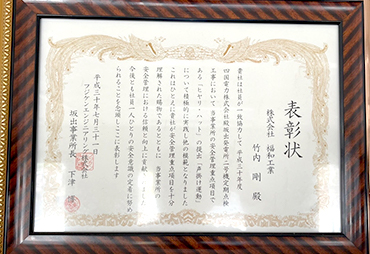 表彰状
株式会社 福和工業
竹内 剛 殿
貴社は社員が一致協力して平成三十年度
四国電力株式会社殿坂出発電所二号機定期点検
工事において当事業所の安全管理重点項目で
ある「ヒヤリ・ハット」の提出「声掛け運動」
について積極的に実践し他の模範となりました
これはひとえに貴社が安全管理重点項目を十分
理解された賜物であるとともに 当事業所の
安全管理における信頼と向上に貢献
今後とも社員一人ひとりの安全意識の定着に努め
られることを念願しここに表彰します
平成三十年七月三十一日
フジケンエンジニアリング株式会社
坂出事業所長 下津